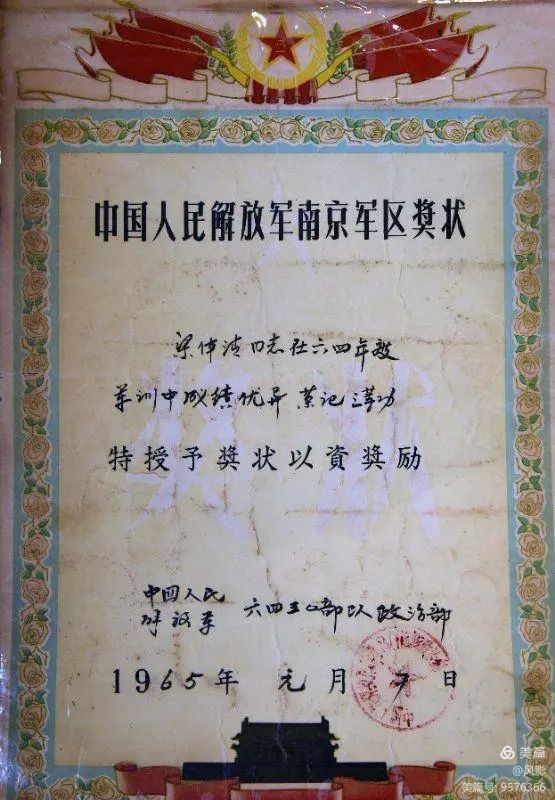 中国人民解放军南京军区奖状
梁仲清同志在六四年度
军训中成绩优异 荣记三等功
特授予奖状以资奖励
中国人民
解放军 六四三〇部队政治部
1965年 元月 7日
美篇
@风影
美篇号:9576366